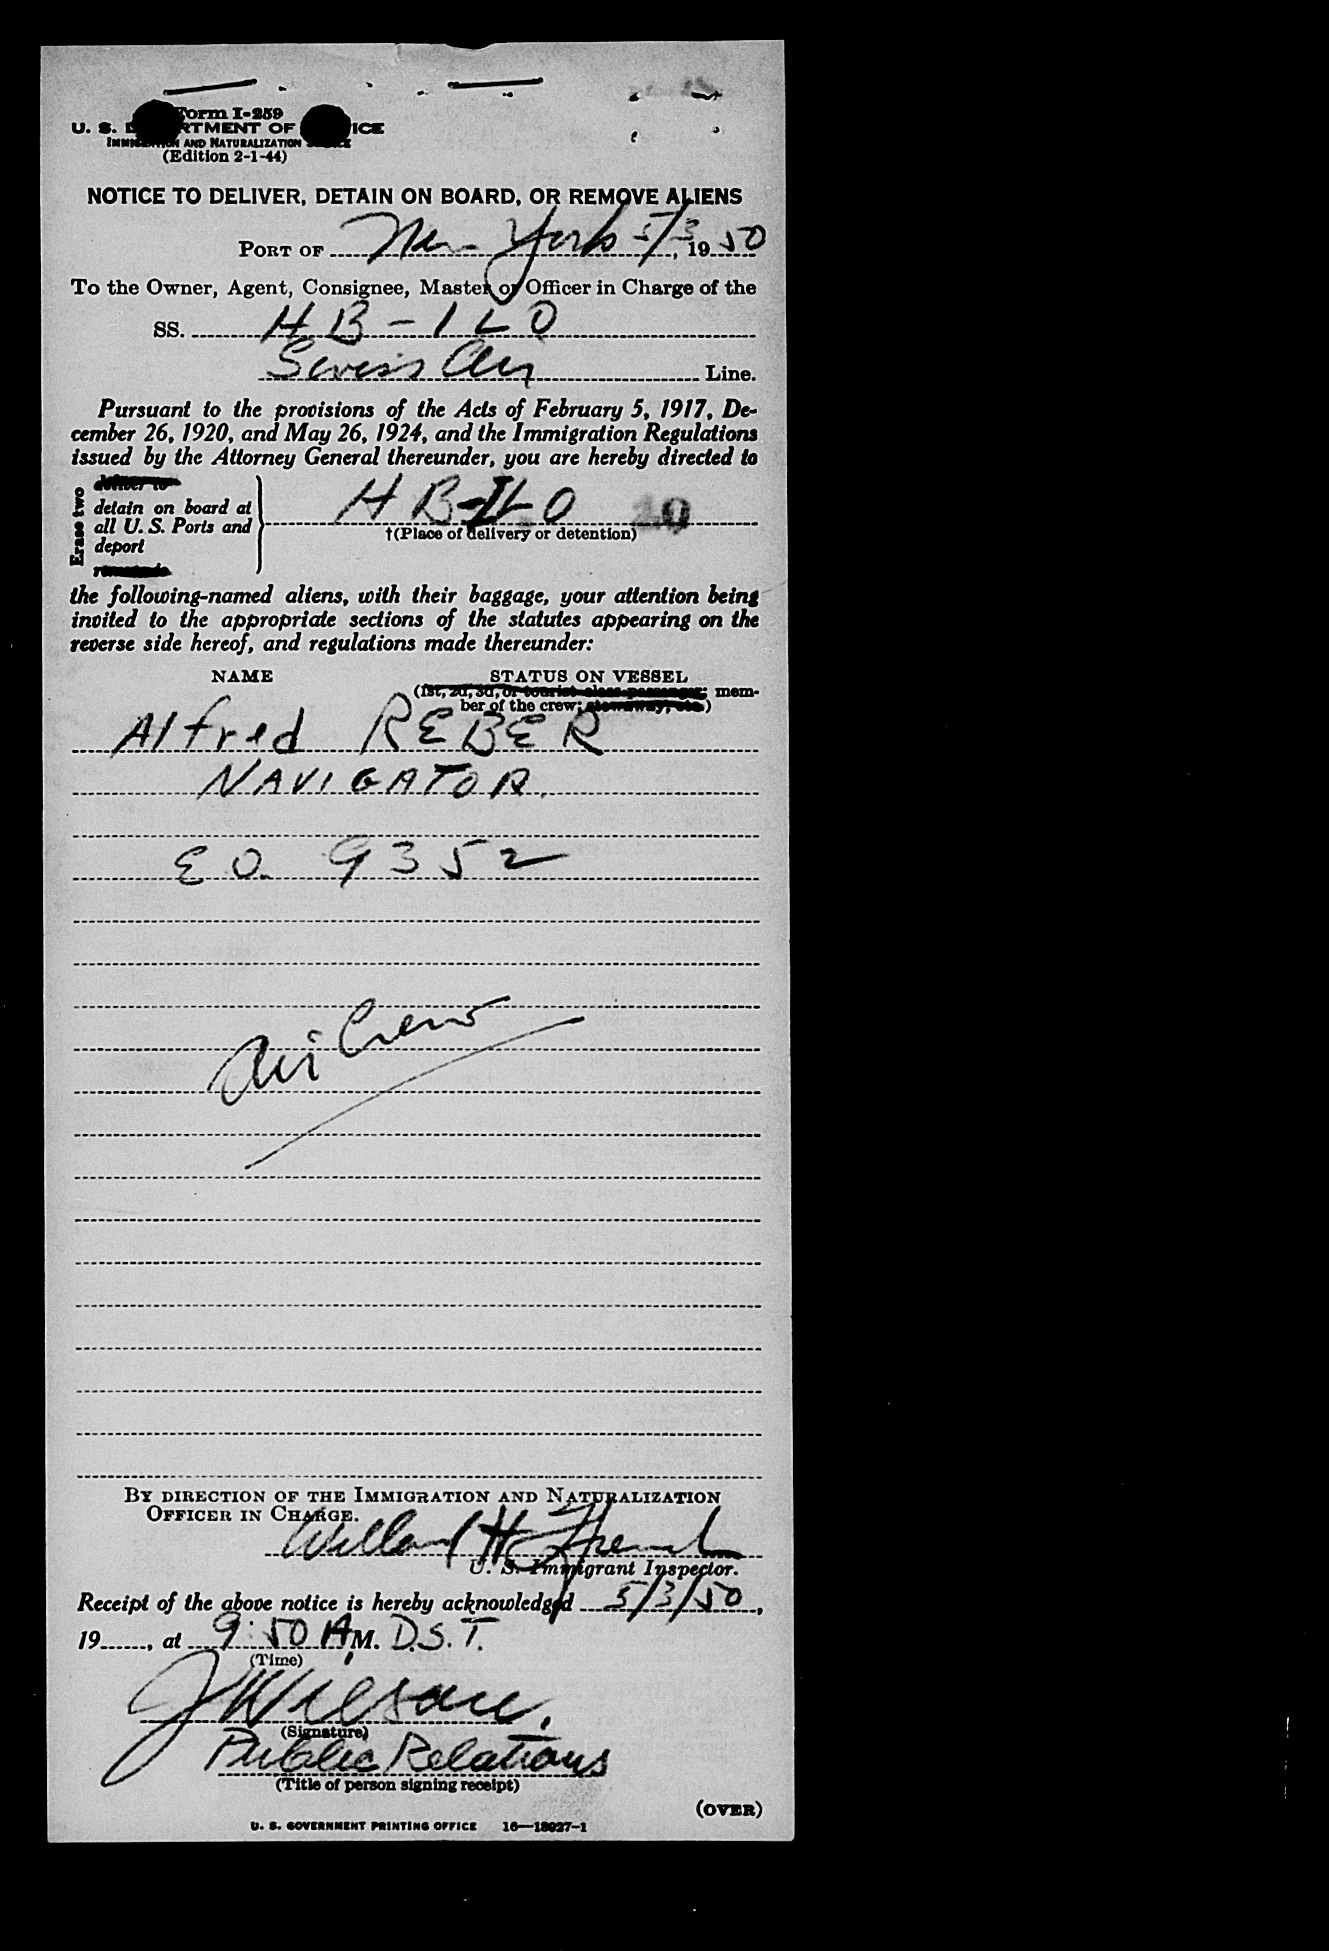 Form I-259
U. S. DEPARTMENT OF JUSTICE
IMMIGRATION AND NATURALIZATION SERVICE
(Edition 2-1-44)
NOTICE TO DELIVER, DETAIN ON BOARD, OR REMOVE ALIENS
PORT OF New York 5/3, 1950
To the Owner, Agent, Consignee, Master or Officer in Charge of the
SS. HB-ILO
Swiss Air Line.
Pursuant to the provisions of the Acts of February 5, 1917, De-
cember 26, 1920, and May 26, 1924, and the Immigration Regulations
issued by the Attorney General thereunder, you are hereby directed to
Erase two
deliver to
detain on board at
all U. S. Ports and
deport
HB-ILO
†(Place of delivery or detention)
the following-named aliens, with their baggage, your attention being
invited to the appropriate sections of the statutes appearing on the
reverse side hereof, and regulations made thereunder:
NAME STATUS ON VESSEL
(1st, 2d, 3d, or tourist class passenger; mem-
ber of the crew; stowaway, etc.)
Alfred REBER
NAVIGATOR.
EO. 9352
Air Crew
BY DIRECTION OF THE IMMIGRATION AND NATURALIZATION
OFFICER IN CHARGE.
Willard H French
U. S. Immigrant Inspector.
Receipt of the above notice is hereby acknowledged 5/3/50,
19......, at 9:50 AM. D.S.T.
(Time)
(Signature)
Public Relations
(Title of person signing receipt)
(OVER)
U. S. GOVERNMENT PRINTING OFFICE 16—18927-1